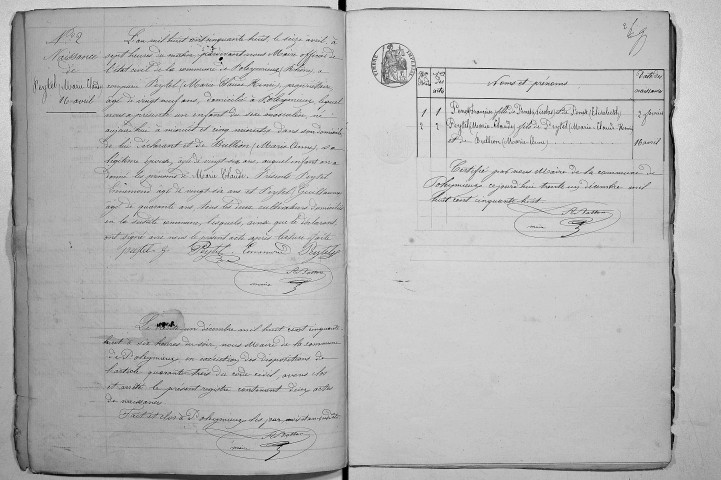 N° 2
Naissance
de
Peytel (Marie Claude)
16 avril
L'an mil huit cent cinquante huit, le seize avril, à
sept heures du matin, pardevant nous Maire officier de
l'état civil de la commune de Poleymieux (Rhône) a
comparu Peytel (Marie Claude Rene), propriétaire
âgé de vingt neuf ans, domicilié à Poleymieux, lequel
nous a présenté un enfant du sexe masculin, né
aujourd'hui à minuit et cinq minutes dans son domicile
de lui déclarant et de Brullion (Marie Anne), sa
légitime épouse, âgée de vingt six ans, auquel enfant on a
donné les prénoms de Marie Claude. Présents Peytel
âgé de vingt six ans et Peytel Guillaume
âgé de quarante ans tous les deux cultivateurs domiciliés
en la susdite commune, lesquels, ainsi que le déclarant
ont signé avec nous le présent acte après lecture faite
Peytel Peytel
maire
Le trente un décembre mil huit cent cinquante
huit à six heures du soir, nous Maire de la commune
de Poleymieux, en exécution des dispositions de
l'article quarante trois du code civil, avons clos
et arrêté le présent registre contenant deux actes
de naissance
Fait et clos à Poleymieux les jour, mois et an susdits
maire
Noms et prénoms
Dates des
naissances
1 1 fille de et de (Elisabeth) 2 février
2 2 Peytel (Marie Claude) fils de Peytel (Marie Claude Rene)
et de Brullion (Marie Anne) 16 avril
Certifié par nous Maire de la commune de
Poleymieux ce jourd'hui trente un décembre mil
huit cent cinquante huit
maire